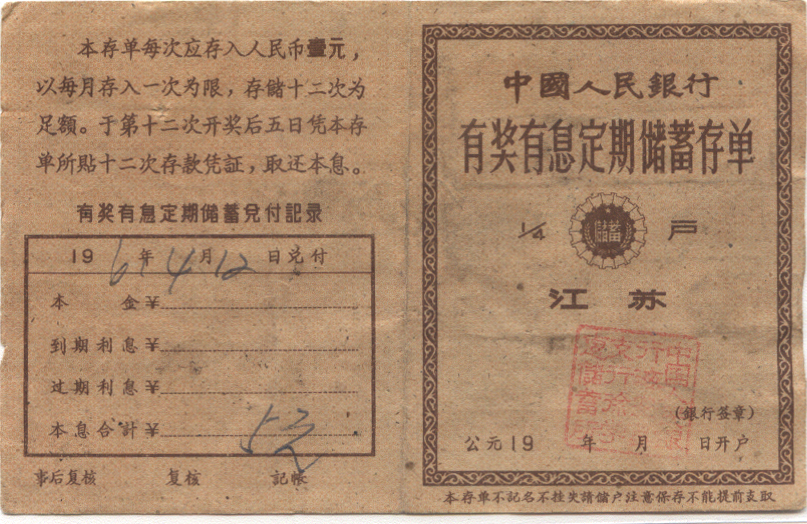 本存单每次应存入人民币壹元，
以每月存入一次为限，存储十二次为
足额。于第十二次开奖后五日凭本存
单所貼十二次存款凭証，取还本息。
有奖有息定期儲蓄兑付記录
19 6 年 4 月 12 日兑付
本金￥
到期利息￥
过期利息￥
本息合計￥
事后复核 复核 記帳
中國人民銀行
有奖有息定期儲蓄存单
1/4 儲蓄 戸
江苏
(銀行签章)
公元19 年 月 日开户
本存单不記名不挂失請儲户注意保存不能提前支取